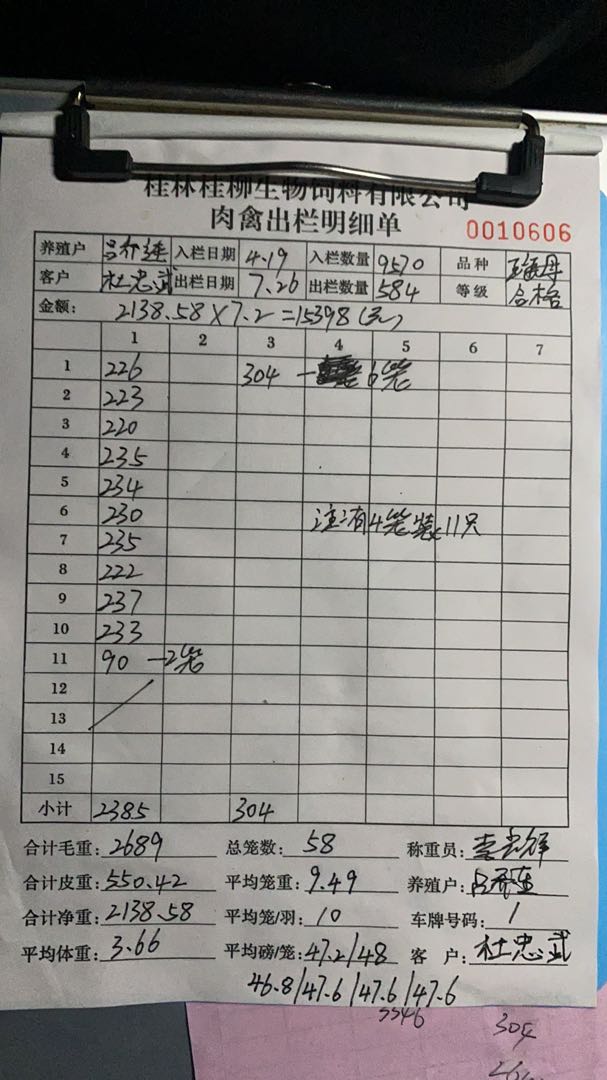 桂林桂柳生物饲料有限公司
肉禽出栏明细单
0010606
养殖户 入栏日期 4.19 入栏数量 9570 品种
客户 杜忠武 出栏日期 7.26 出栏数量 584 等级 合格
金额: 2138.58×7.2=15398(元)
1 2 3 4 5 6 7
1 226 304 — 6笼
2 223
3 220
4 235
5 234
6 230 注:有4笼装11只
7 235
8 222
9 237
10 233
11 90 —2笼
12
13
14
15
小计 2385 304
合计毛重: 2689 总笼数: 58 称重员:
合计皮重: 550.42 平均笼重: 9.49 养殖户:
合计净重: 2138.58 平均笼/羽: 10 车牌号码: 1
平均体重: 3.66 平均磅/笼: 47.2/48 客 户: 杜忠武
46.8/47.6/47.6/47.6
5546
304